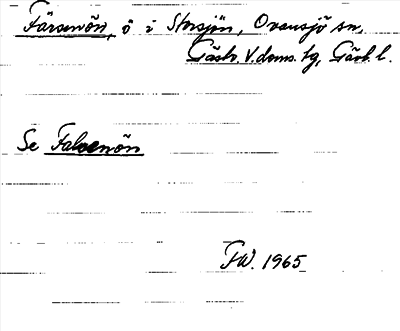 Färsenön, ö i Storsjön, Ovansjö sn,
Gästr. V. doms. tg, Gävl. l.
Se Falsenön
FW. 1965